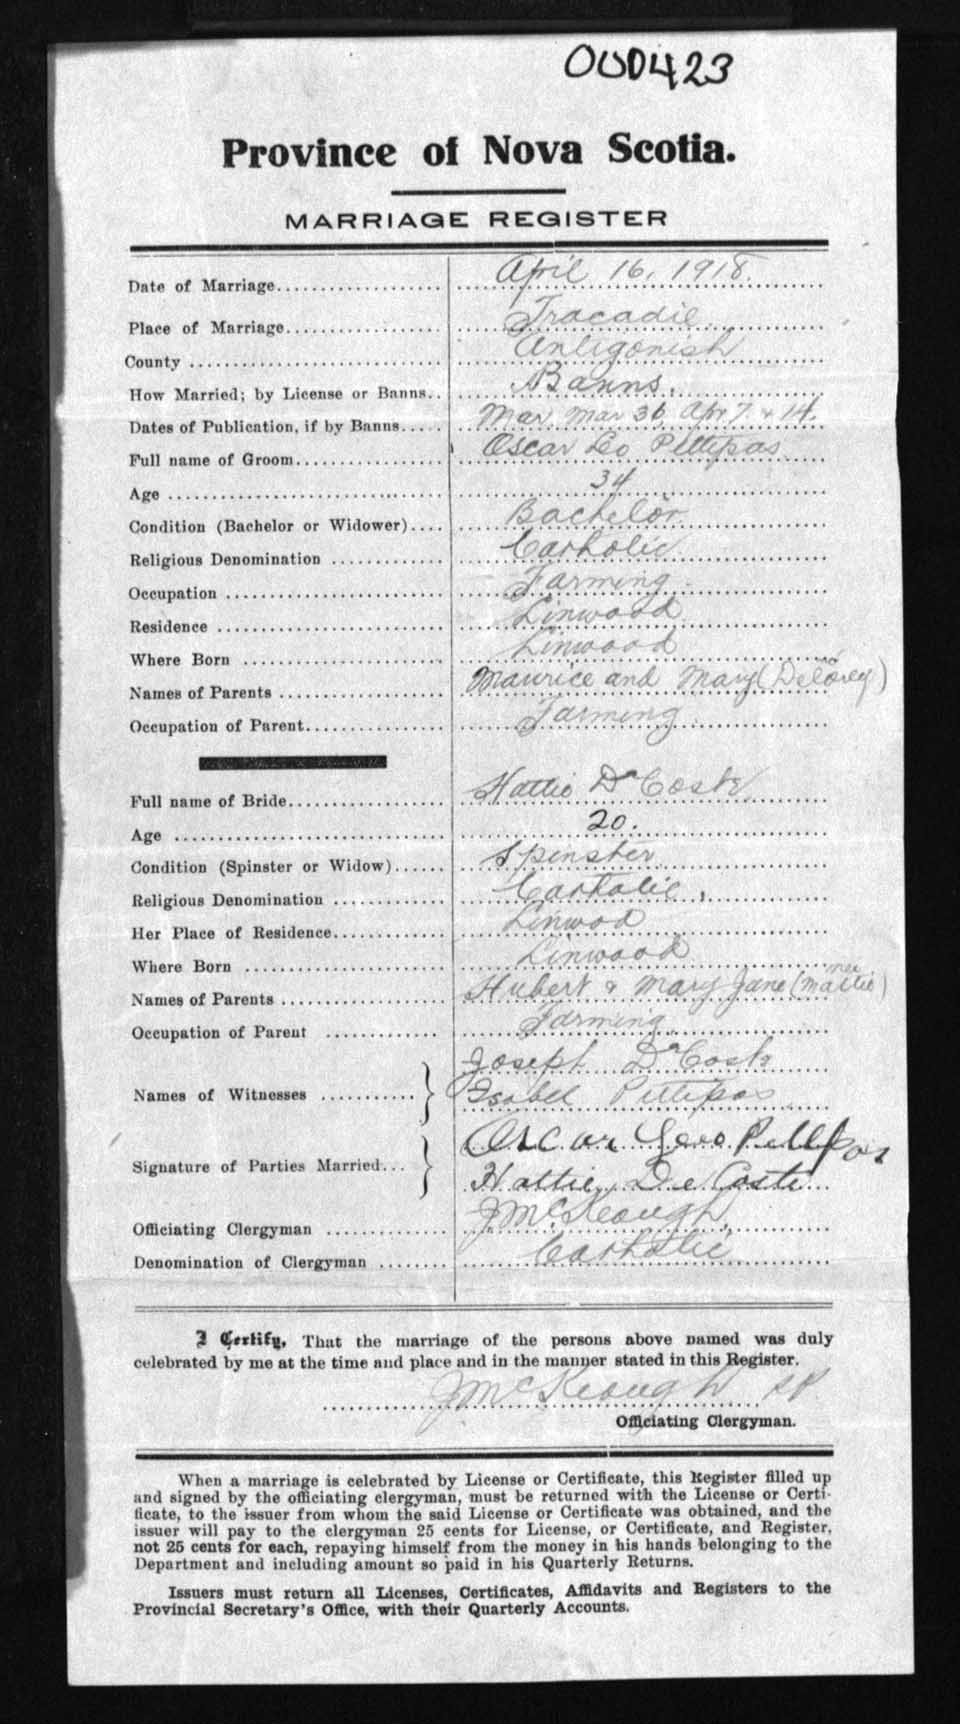 000423
Province of Nova Scotia.
MARRIAGE REGISTER
Date of Marriage.................... April 16, 1918.
Place of Marriage.................. Tracadie
County .............................. Antigonish
How Married; by License or Banns.. Banns.
Dates of Publication, if by Banns..... Mar. Mar 31, Apr 7. & 14.
Full name of Groom................. Oscar Lo Pettipas
Age .............................. 34
Condition (Bachelor or Widower).... Bachelor
Religious Denomination ............. Catholic
Occupation ......................... Farming
Residence .......................... Linwood
Where Born ........................ Linwood
Names of Parents .................. Maurice and Mary (Delorey)
Occupation of Parent................ Farming
Full name of Bride.................. Hattie DeCoste
Age ............................... 20.
Condition (Spinster or Widow)...... Spinster
Religious Denomination ............ Catholic.
Her Place of Residence............. Linwod
Where Born ........................ Linwood
Names of Parents .................. Hubert & Mary Jane (Mattie)
Occupation of Parent .............. Farming
Names of Witnesses ........... } Joseph DeCoste
Isabel Pettipas
Signature of Parties Married... } Oscar Leo Pettipas
Hattie DeCoste
Officiating Clergyman .............. J McKeough,
Denomination of Clergyman ........ Catholic
I Certify, That the marriage of the persons above named was duly
celebrated by me at the time and place and in the manner stated in this Register.
J McKeough PP.
Officiating Clergyman.
When a marriage is celebrated by License or Certificate, this Register filled up
and signed by the officiating clergyman, must be returned with the License or Certi-
ficate, to the issuer from whom the said License or Certificate was obtained, and the
issuer will pay to the clergyman 25 cents for License, or Certificate, and Register,
not 25 cents for each, repaying himself from the money in his hands belonging to the
Department and including amount so paid in his Quarterly Returns.
Issuers must return all Licenses, Certificates, Affidavits and Registers to the
Provincial Secretary's Office, with their Quarterly Accounts.